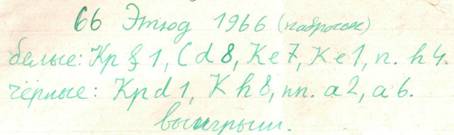 66 Этюд 1966 (набросок)
белые: Кр g1, С d8, К e7, К e1, п. h4.
чёрные: Кр d1, К h8, пп. a2, a6.
выигрыш.